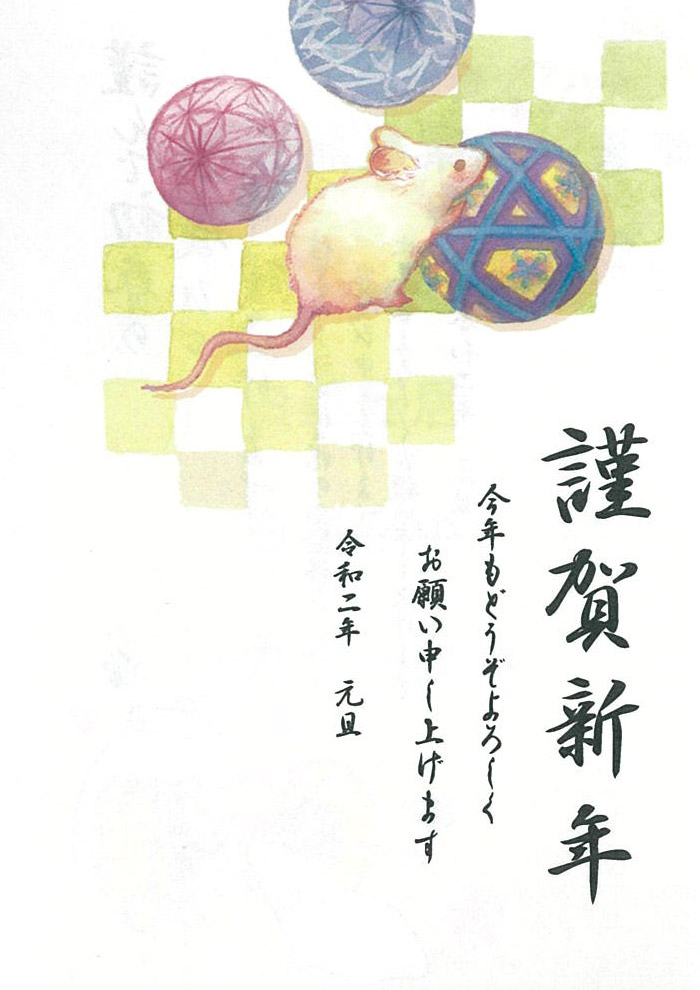 謹賀新年
今年もどうぞよろしく
お願い申し上げます
令和二年　元旦